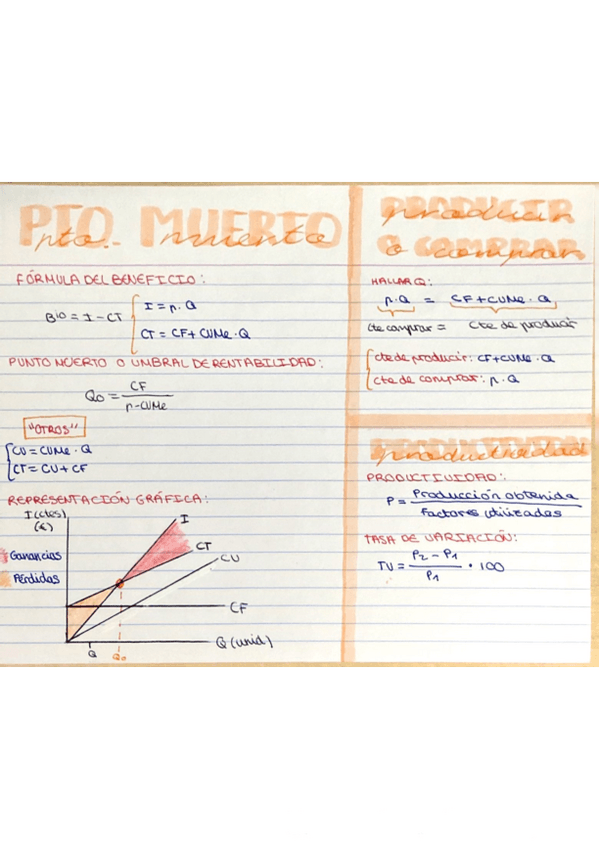 PTO. MUERTO
pto. muerto
FÓRMULA DEL BENEFICIO:
Bio = I - CT
I = p. Q
CT = CF + CUMe · Q
PUNTO MUERTO O UMBRAL DE RENTABILIDAD:
Qo = CF / p - CUMe
"OTROS"
CU = CUMe · Q
CT = CU + CF
REPRESENTACIÓN GRÁFICA:
I (ctes)
(€)
I
CT
CU
CF
Ganancias
Pérdidas
Q (unid)
Q
Qo
PRODUCIR
producir
O COMPRAR
o comprar
HALLAR Q:
p. Q = CF + CUMe · Q
Cte comprar = Cte de producir
Cte de producir: CF + CUMe · Q
Cte de comprar: p. Q
PRODUCTIVIDAD
productividad
PRODUCTIVIDAD:
P = Producción obtenida / Factores utilizados
TASA DE VARIACIÓN:
TV = P2 - P1 / P1 · 100